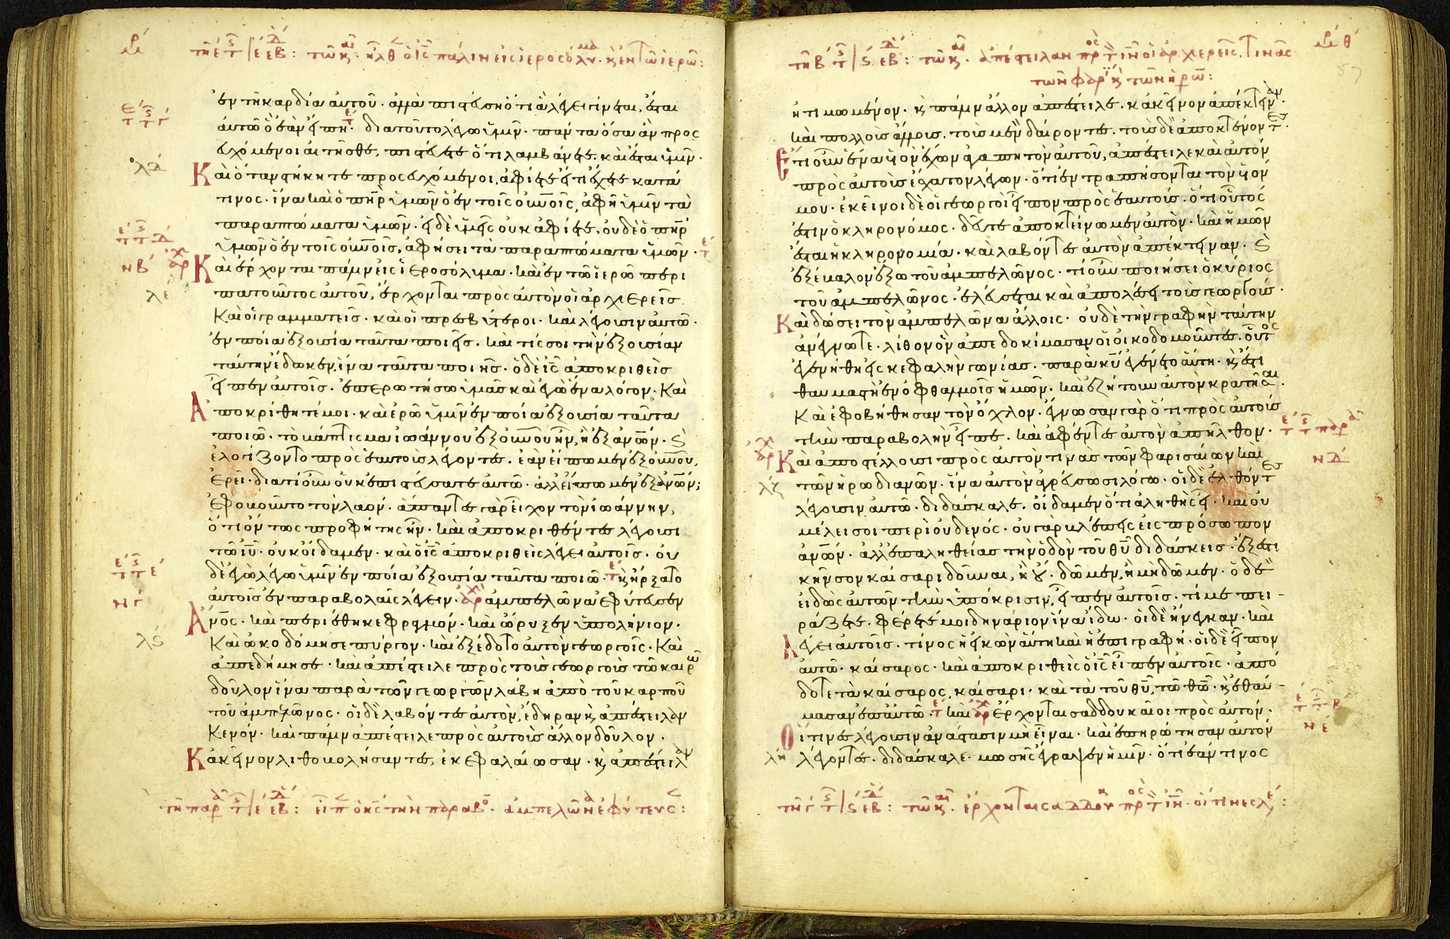 ἐν τῆ καρδία αὐτοῦ · ἀλλὰ πιστεύση ὅτι ἃ λέγει γίνεται, ἔσται
αὐτῶ ὃ ἐὰν εἴπη · διατοῦτο λέγω ὑμῖν · πάντα ὅσα ἂν προσ
ευχόμενοι αἰτῆσθε, πιστεύετε ὅτι λαμβάνετε, καὶ ἔσται ὑμῖν ·
Καὶ ὅταν στήκητε προσευχόμενοι, ἀφίετε εἴ τι ἔχετε κατά
τινος · ἵνα καὶ ὁ πηρ ὑμῶν ὁ ἐν τοῖς οὐνοῖς, ἀφῆ ὑμῖν τὰ
παραπτώματα ὑμῶν · εἰ δὲ ὑμεῖς οὐκ ἀφίετε, οὐδὲ ὁ πηρ
ὑμῶν ὁ ἐν τοῖς οὐνοῖς, ἀφήσει τὰ παραπτώματα ὑμῶν ·
Καὶ ἔρχονται πάλιν εἰς ἱεροσόλυμα · καὶ ἐν τῶ ἱερῶ περι
πατοῦντος αὐτοῦ, ἔρχονται πρὸς αὐτὸν οἱ ἀρχιερεῖς
καὶ οἱ γραμματεῖς · καὶ οἱ πρεσβύτεροι · καὶ λέγουσιν αὐτῶ ·
ἐν ποία ἐξουσία ταῦτα ποιεῖς · καὶ τίς σοι τὴν ἐξουσίαν
ταύτην ἔδωκεν, ἵνα ταῦτα ποιῆς · ὁ δὲ ις ἀποκριθεὶς
εἶπεν αὐτοῖς · ἐπερωτήσω ὑμᾶς καὶ ἐγὼ ἕνα λόγον · Καὶ
Ἀποκρίθητέ μοι · καὶ ἐρῶ ὑμῖν ἐν ποία ἐξουσία ταῦτα
ποιῶ · τὸ βάπτισμα ἰωάννου ἐξ οὐνοῦ ἦν, ἢ ἐξ ἀνων ·
ἐλογίζοντο πρὸς ἑαυτοὺς λέγοντες · ἐὰν εἴπωμεν ἐξ οὐνοῦ,
ἐρεῖ · διατί οὖν οὐκ ἐπιστεύσατε αὐτῶ · ἀλλ' εἴπωμεν ἐξ ἀνων;
ἐφοβοῦντο τὸν λαόν · ἅπαντες γὰρ εἶχον τὸν ἰωάννην,
ὅτι ὄντως προφήτης ἦν · καὶ ἀποκριθέντες λέγουσι
τῶ ιυ · οὐκ οἴδαμεν · καὶ ὁ ις ἀποκριθεὶς λέγει αὐτοῖς · οὐ
δὲ ἐγὼ λέγω ὑμῖν ἐν ποία ἐξουσία ταῦτα ποιῶ · κ ἤρξατο
αὐτοῖς ἐν παραβολαῖς λέγειν · ἀμπελῶνα ἐφύτευσεν
Ἄνος · καὶ περιέθηκε φραγμόν · καὶ ὤρυξεν ὑπολήνιον ·
Καὶ ὠκοδόμησε πύργον · καὶ ἐξέδοτο αὐτὸν γεωργοῖς · Καὶ
ἀπεδήμησε · καὶ ἀπέστειλε πρὸς τοὺς γεωργοὺς τῶ καιρῶ
δοῦλον ἵνα παρὰ τῶν γεωργῶν λάβη ἀπὸ τοῦ καρποῦ
τοῦ ἀμπελῶνος · οἱ δὲ λαβόντες αὐτόν, ἔδηραν κ ἀπέστειλαν
κενόν · καὶ πάλιν ἀπέστειλε πρὸς αὐτοὺς ἄλλον δοῦλον ·
Κἀκεῖνον λιθοβολήσαντες, ἐκεφαλαίωσαν · κ ἀπέστειλαν
ἠτιμωμένον · κ πάλιν ἄλλον ἀπέστειλε · κἀκεῖνον ἀπέκτειναν ·
καὶ πολλοὺς ἄλλους · τοὺς μὲν δαίροντες · τοὺς δὲ ἀποκτένοντες ·
Ἔτι οὖν ἕνα υἱὸν ἔχων ἀγαπητὸν αὐτοῦ, ἀπέστειλε καὶ αὐτὸν
πρὸς αὐτοὺς ἔσχατον λέγων · ὅτι ἐντραπήσονται τὸν υἱόν
μου · ἐκεῖνοι δὲ οἱ γεωργοὶ εἶπον πρὸς ἑαυτούς · ὅτι οὗτός
ἐστιν ὁ κληρονόμος · δεῦτε ἀποκτείνωμεν αὐτόν · καὶ ἡμῶν
ἔσται ἡ κληρονομία · καὶ λαβόντες αὐτὸν ἀπέκτειναν ·
ἐξέβαλον ἔξω τοῦ ἀμπελῶνος · τί οὖν ποιήσει ὁ κύριος
τοῦ ἀμπελῶνος · ἐλεύσεται καὶ ἀπολέσει τοὺς γεωργούς ·
Καὶ δώσει τὸν ἀμπελῶνα ἄλλοις · οὐδὲ τὴν γραφὴν ταύτην
ἀνέγνωτε · λίθον ὃν ἀπεδοκίμασαν οἱ οἰκοδομοῦντες, οὗτος
ἐγενήθη εἰς κεφαλὴν γωνίας · παρὰ κυ ἐγένετο αὕτη · κ ἔστι
θαυμαστὴ ἐν ὀφθαλμοῖς ἡμῶν · καὶ ἐζήτουν αὐτὸν κρατῆσαι ·
Καὶ ἐφοβήθησαν τὸν ὄχλον · ἔγνωσαν γὰρ ὅτι πρὸς αὐτοὺς
τὴν παραβολὴν εἶπε · καὶ ἀφέντες αὐτὸν ἀπῆλθον ·
Καὶ ἀποστέλλουσι πρὸς αὐτόν τινας τῶν φαρισαίων καὶ
τῶν ἡρωδιανῶν · ἵνα αὐτὸν ἀγρεύσωσι λόγω · οἱ δὲ ἐλθόντες
λέγουσιν αὐτῶ · διδάσκαλε · οἴδαμεν ὅτι ἀληθὴς εἶ · καὶ οὐ
μέλει σοι περὶ οὐδενός · οὐ γὰρ βλέπεις εἰς πρόσωπον
ἀνων · ἀλλ' ἐπ' ἀληθείας τὴν ὁδὸν τοῦ θυ διδάσκεις · ἔξεστι
κῆνσον καίσαρι δοῦναι, ἢ οὔ · δῶμεν, ἢ μὴ δῶμεν · ὁ δὲ
εἰδὼς αὐτῶν τὴν ὑπόκρισιν, εἶπεν αὐτοῖς · τί με πει-
ράζετε · φέρετέ μοι δηνάριον ἵνα ἴδω · οἱ δὲ ἤνεγκαν · καὶ
Λέγει αὐτοῖς · τίνος ἡ εἰκὼν αὕτη καὶ ἡ ἐπιγραφή · οἱ δὲ εἶπον
αὐτῶ · καίσαρος · καὶ ἀποκριθεὶς ὁ ις εἶπεν αὐτοῖς · ἀπό
δοτε τὰ καίσαρος, καίσαρι · καὶ τὰ τοῦ θυ, τῶ θω · κ ἐθαύ-
μασαν ἐπ' αὐτῶ · καὶ ἔρχονται σαδδουκαῖοι πρὸς αὐτόν ·
Οἵτινες λέγουσιν ἀνάστασιν μὴ εἶναι · καὶ ἐπηρώτησαν αὐτὸν
λέγοντες · διδάσκαλε · μωσῆς ἔγραψεν ἡμῖν · ὅτι ἐάν τινος